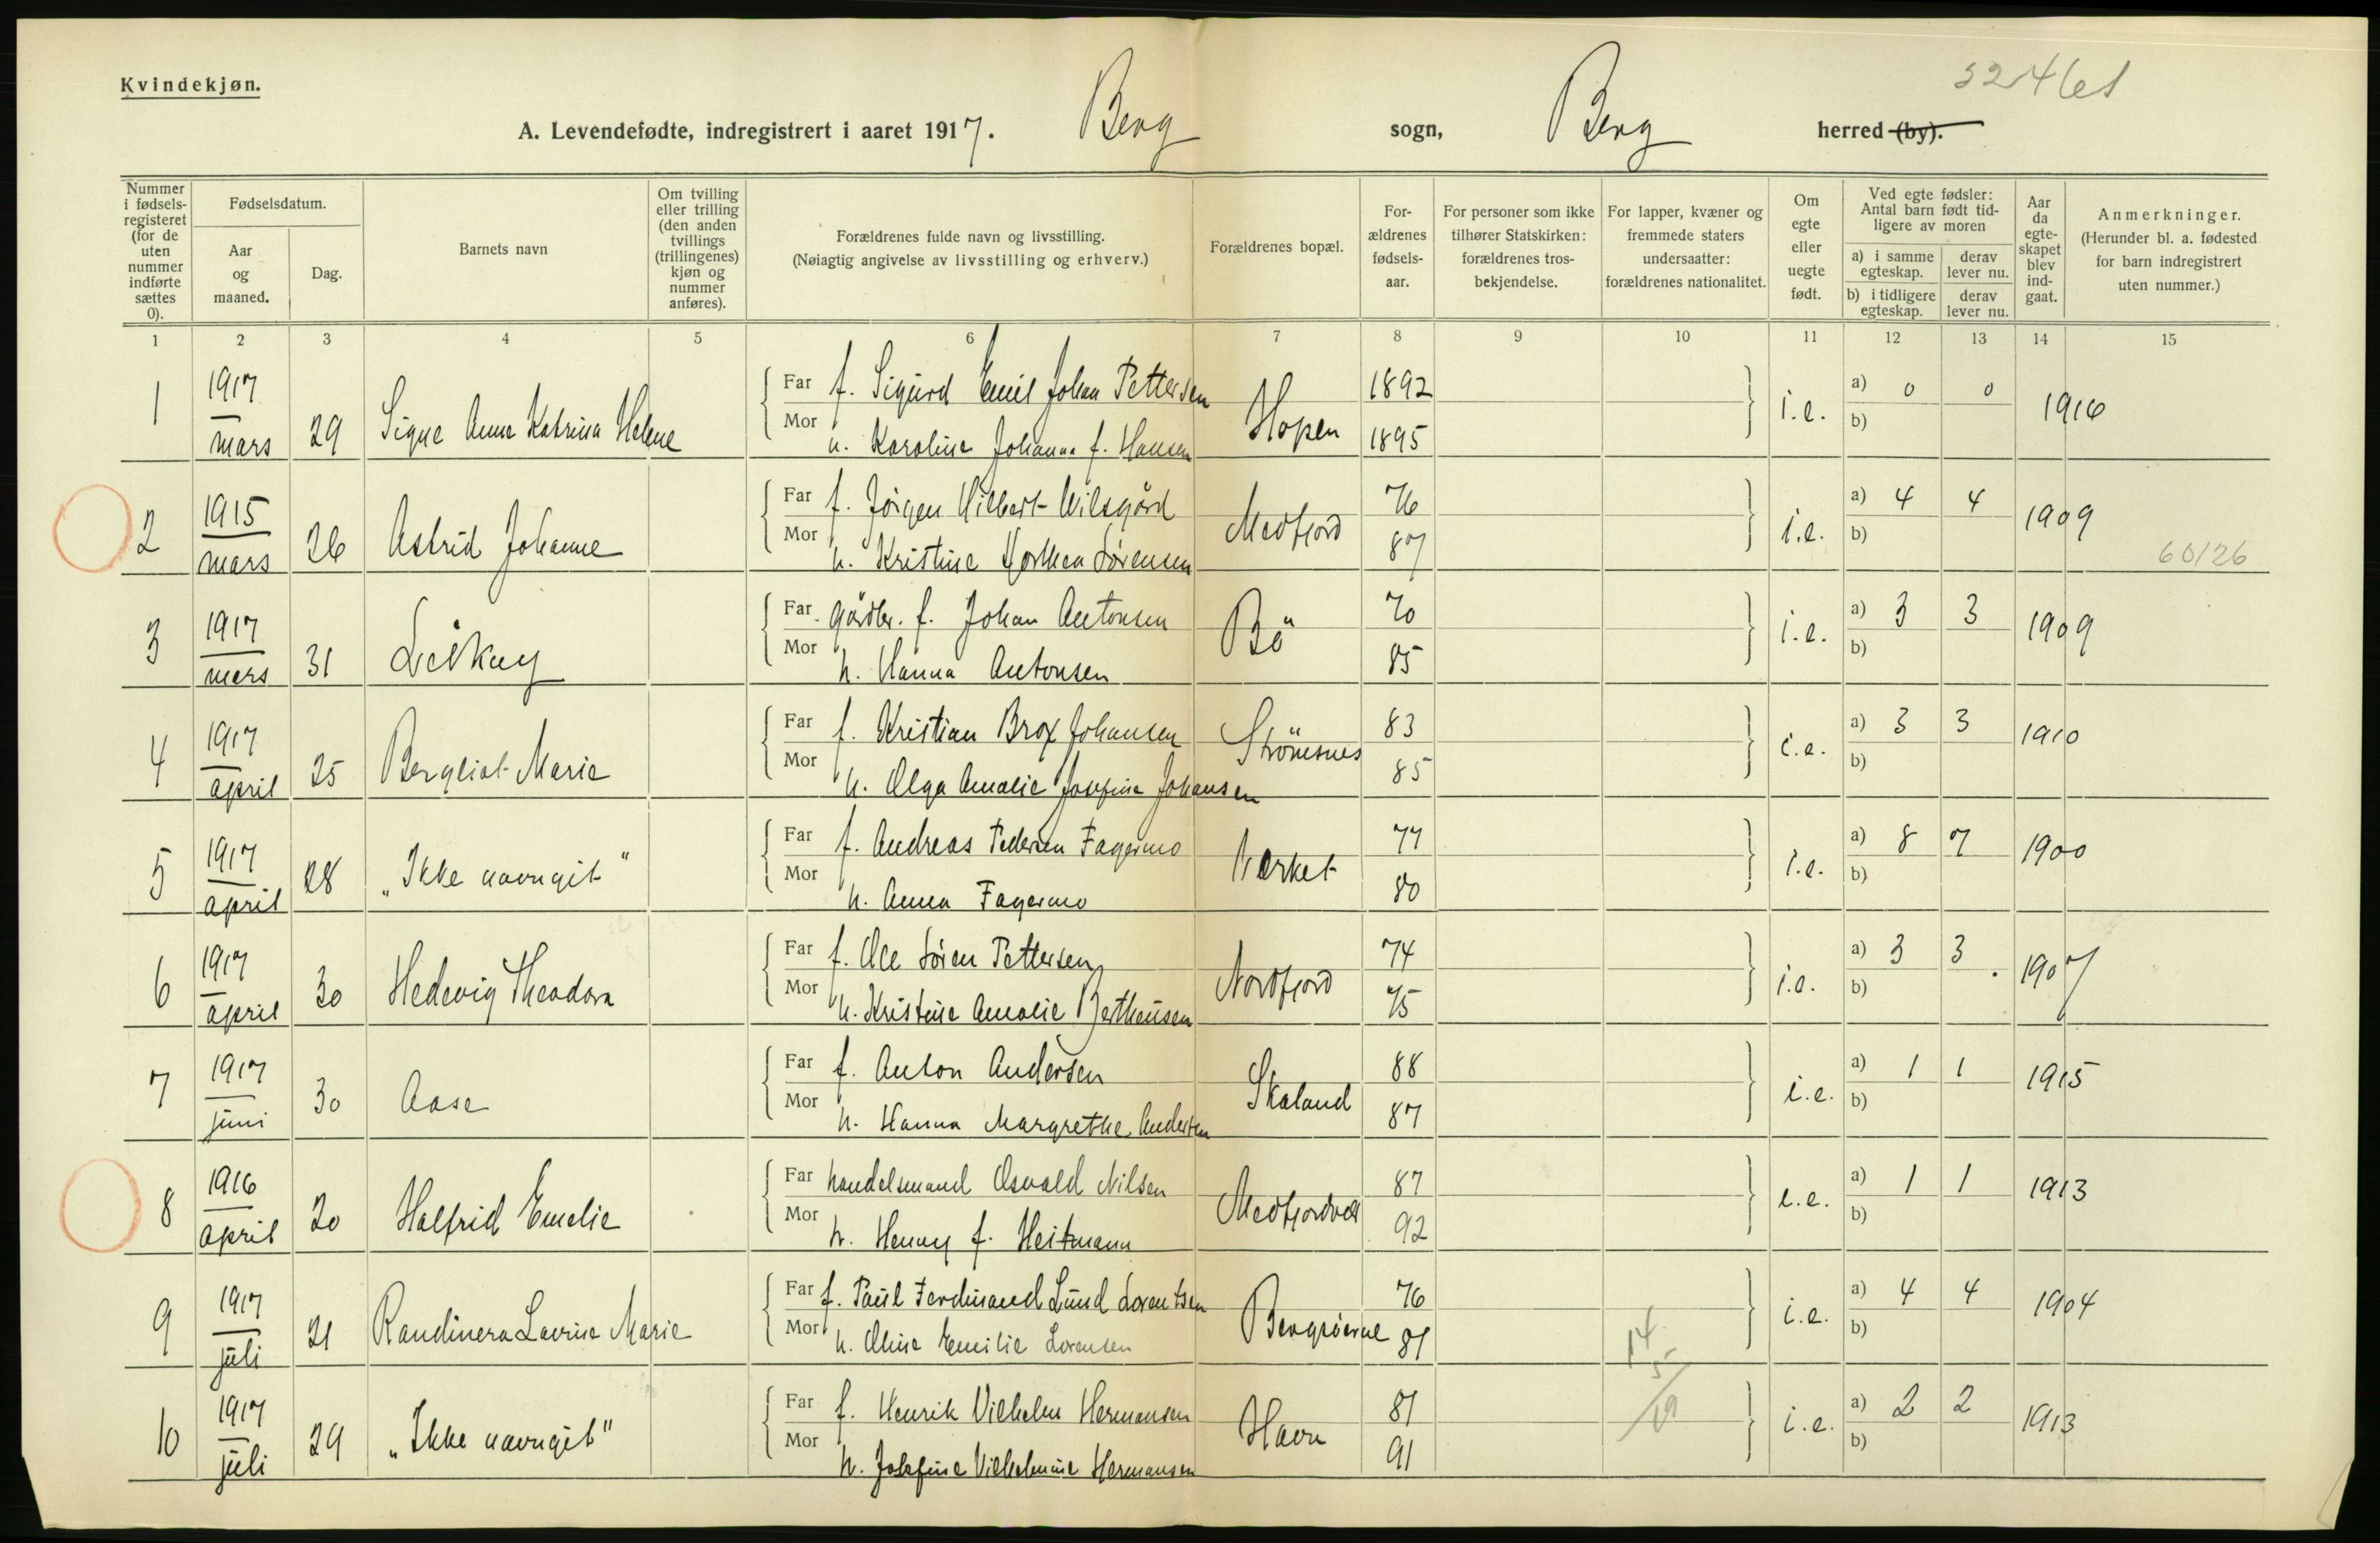 Kvindekjøn.
A. Levendefødte, indregistrert i aaret 1917. Berg sogn, Berg herred (by).
Nummer i fødselsregisteret (for de uten nummer indførte sættes 0).
Fødselsdatum.
Aar og maaned.
Dag.
Barnets navn
Om tvilling eller trilling (den anden tvillings (trillingenes) kjøn og nummer anføres).
Forældrenes fulde navn og livsstilling.
(Nøiagtig angivelse av livsstilling og erhverv.)
Forældrenes bopæl.
Forældrenes fødselsaar.
For personer som ikke tilhører Statskirken: forældrenes trosbekjendelse.
For lapper, kvæner og fremmede staters undersaatter: forældrenes nationalitet.
Om egte eller uegte født.
Ved egte fødsler: Antal barn født tidligere av moren
a) i samme egteskap. derav lever nu.
b) i tidligere egteskap. derav lever nu.
Aar da egteskapet blev indgaat.
Anmerkninger.
(Herunder bl. a. fødested for barn indregistrert uten nummer.)
1 2 3 4 5 6 7 8 9 10 11 12 13 14 15
1 1917 mars 29 Signe Anna Katrina Helene
Far f. Sigurd Emil Johan Pettersen Hopen 1892 i.e. a) 0 0 1916
Mor h. Karoline Johanna f. Hansen 1895 b)
2 1915 mars 26 Astrid Johanne
Far f. Jörgen Hilbert Wilsgård Medfjord 76 i.e. a) 4 4 1909
Mor h. Kristine Sörensen 87 b) 60/26
3 1917 mars 31 Liskay
Far gårdbr. f. Johan Antonsen Bö 70 i.e. a) 3 3 1909
Mor h. Hanna Antonsen 85 b)
4 1917 april 25 Bergliot Marie
Far f. Kristian Brox Johansen Strömsnes 83 i.e. a) 3 3 1910
Mor h. Olga Amalie Josefine Johansen 85 b)
5 1917 april 28 „Ikke navngit"
Far f. Andreas Pedersen Fagermo Værket 77 i.e. a) 8 7 1900
Mor h. Anna Fagermo 80 b)
6 1917 april 30 Hedevig Theodora
Far f. Ole Sören Pettersen Nordfjord 74 i.e. a) 3 3 1907
Mor h. Kristine Amalie Bertheusen 75 b)
7 1917 juni 30 Aase
Far f. Anton Andersen Skaland 88 i.e. a) 1 1 1915
Mor h. Hanna Margrethe Andersen 87 b)
8 1916 april 20 Halfrid Emelie
Far handelsmand Osvald Nilsen 87 i.e. a) 1 1 1913
Mor h. Henny f. Heitmann 92 b)
9 1917 juli 21 Randinera Lavrine Marie
Far f. Paul Ferdinand Lund Lorentsen 76 i.e. a) 4 4 1904
Mor h. Oline Emilie Lorensen 81 b)
10 1917 juli 29 „Ikke navngit"
Far f. Henrik Vilhelm Hermansen Havn 81 i.e. a) 2 2 1913
Mor h. Josefine Vilhelmine Hermansen 91 b)
14
5
19